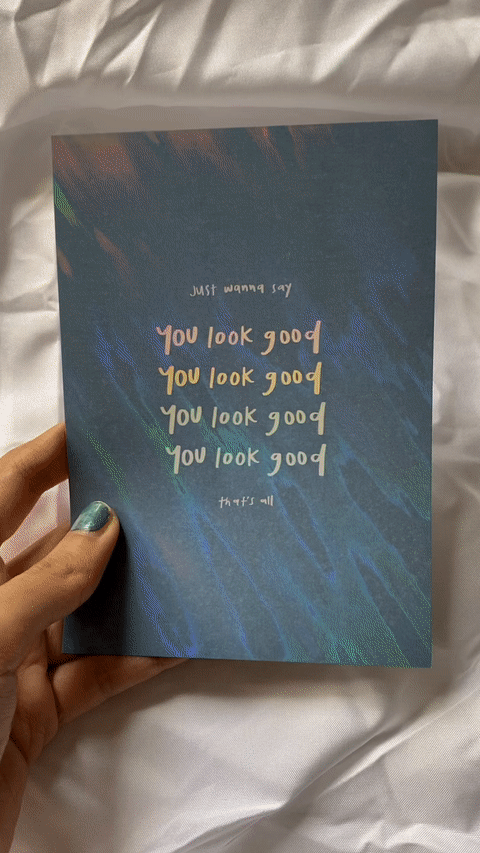 just wanna say
you look good
you look good
you look good
you look good
that's all